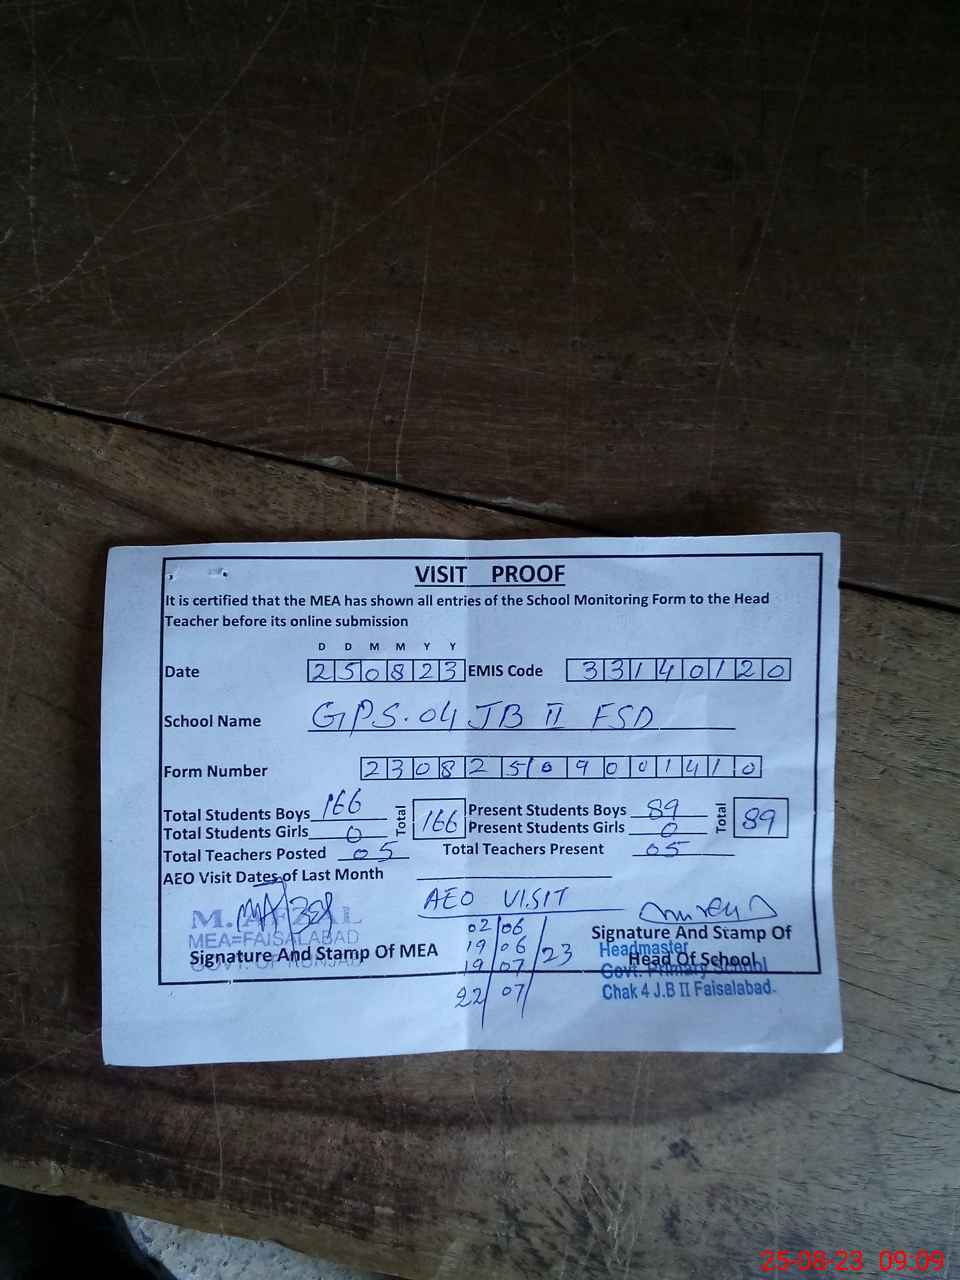 VISIT PROOF
It is certified that the MEA has shown all entries of the School Monitoring Form to the Head
Teacher before its online submission
D D M M Y Y
Date 250823 EMIS Code 33140120
School Name GPS.04 JB II FSD
Form Number 23082509001410
Total Students Boys 166 Total 166 Present Students Boys 89 Total 89
Total Students Girls 0 Present Students Girls 0
Total Teachers Posted 05 Total Teachers Present 05
AEO Visit Dates of Last Month
AEO VISIT
02/06
19/06
19/07
22/07
/23
M. AFZAL
MEA=FAISALABAD
GOVT. OF PUNJAB
Signature And Stamp Of MEA
Signature And Stamp Of
Head Of School
Headmaster
Govt. Primary School
Chak 4 J.B II Faisalabad.
25-08-23 09:09